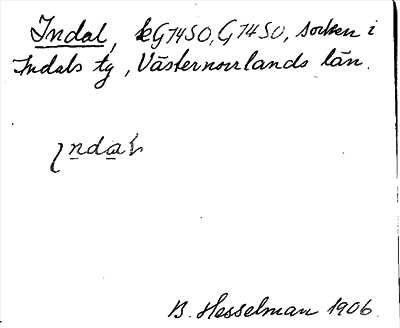 Indal, k G 74 SO, G 74 SO, socken i
Indals tg, Västernorrlands län.
B. Hesselman 1906.